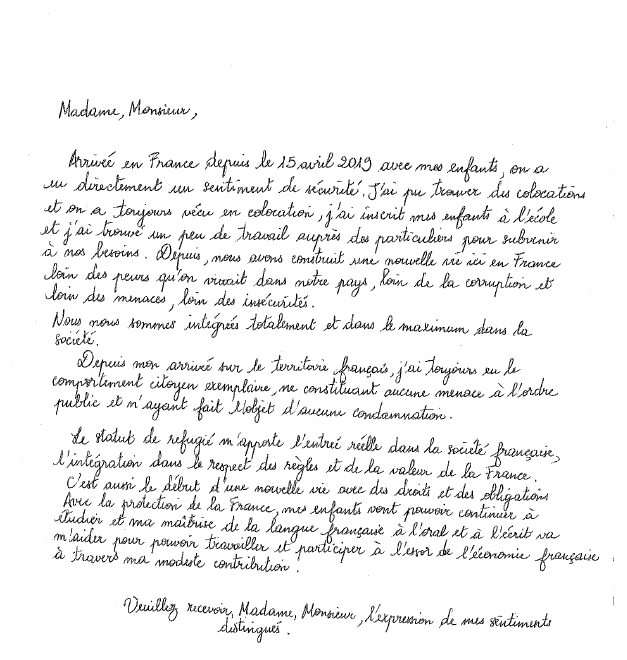 Madame, Monsieur,
Arrivé en France depuis le 15 avril 2019 avec mes enfants, on a
eu directement un sentiment de sécurité. J'ai pu trouver des colocations
et on a toujours vécu en colocation, j'ai inscrit mes enfants à l'école
et j'ai trouvé un peu de travail auprès des particuliers pour subvenir
à nos besoins. Depuis, nous avons construit une nouvelle vie ici en France
loin des peurs qu'on vivait dans notre pays, loin de la corruption et
loin des menaces, loin des insécurités.
Nous nous sommes intégrées totalement et dans le maximum dans la
société.
Depuis mon arrivé sur le territoire français, j'ai toujours eu le
comportement citoyen exemplaire, ne constituant aucune menace à l'ordre
public et n'ayant fait l'objet d'aucune condamnation.
Le statut de refugié m'apporte l'entreé réelle dans la société française,
l'intégration dans le respect des règles et de la valeur de la France.
C'est aussi le début d'une nouvelle vie avec des droits et des obligations
Avec la protection de la France, mes enfants vont pouvoir continuer à
étudier et ma maîtrise de la langue française à l'oral et à l'écrit va
m'aider pour pouvoir travailler et participer à l'essor de l'économie française
à travers ma modeste contribution.
Veuillez recevoir, Madame, Monsieur, l'expression de mes sentiments
distingués.